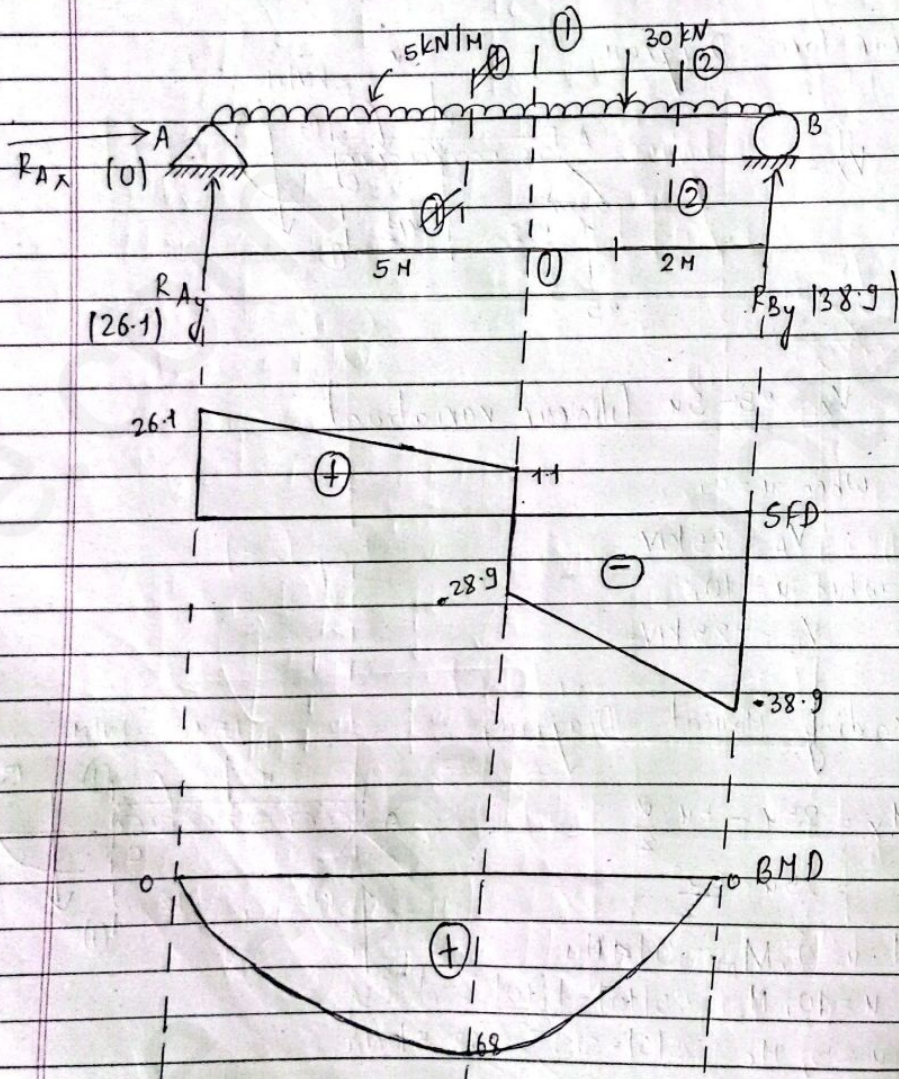 5 kN/M ① ① 30 kN ②
A B
R_Ax (0)
① ②
5 M ① 2 M
R_Ay (26.1) R_By (38.9)
26.1
+ 1.1
SFD
-28.9 −
-38.9
0 0 BMD
+
68